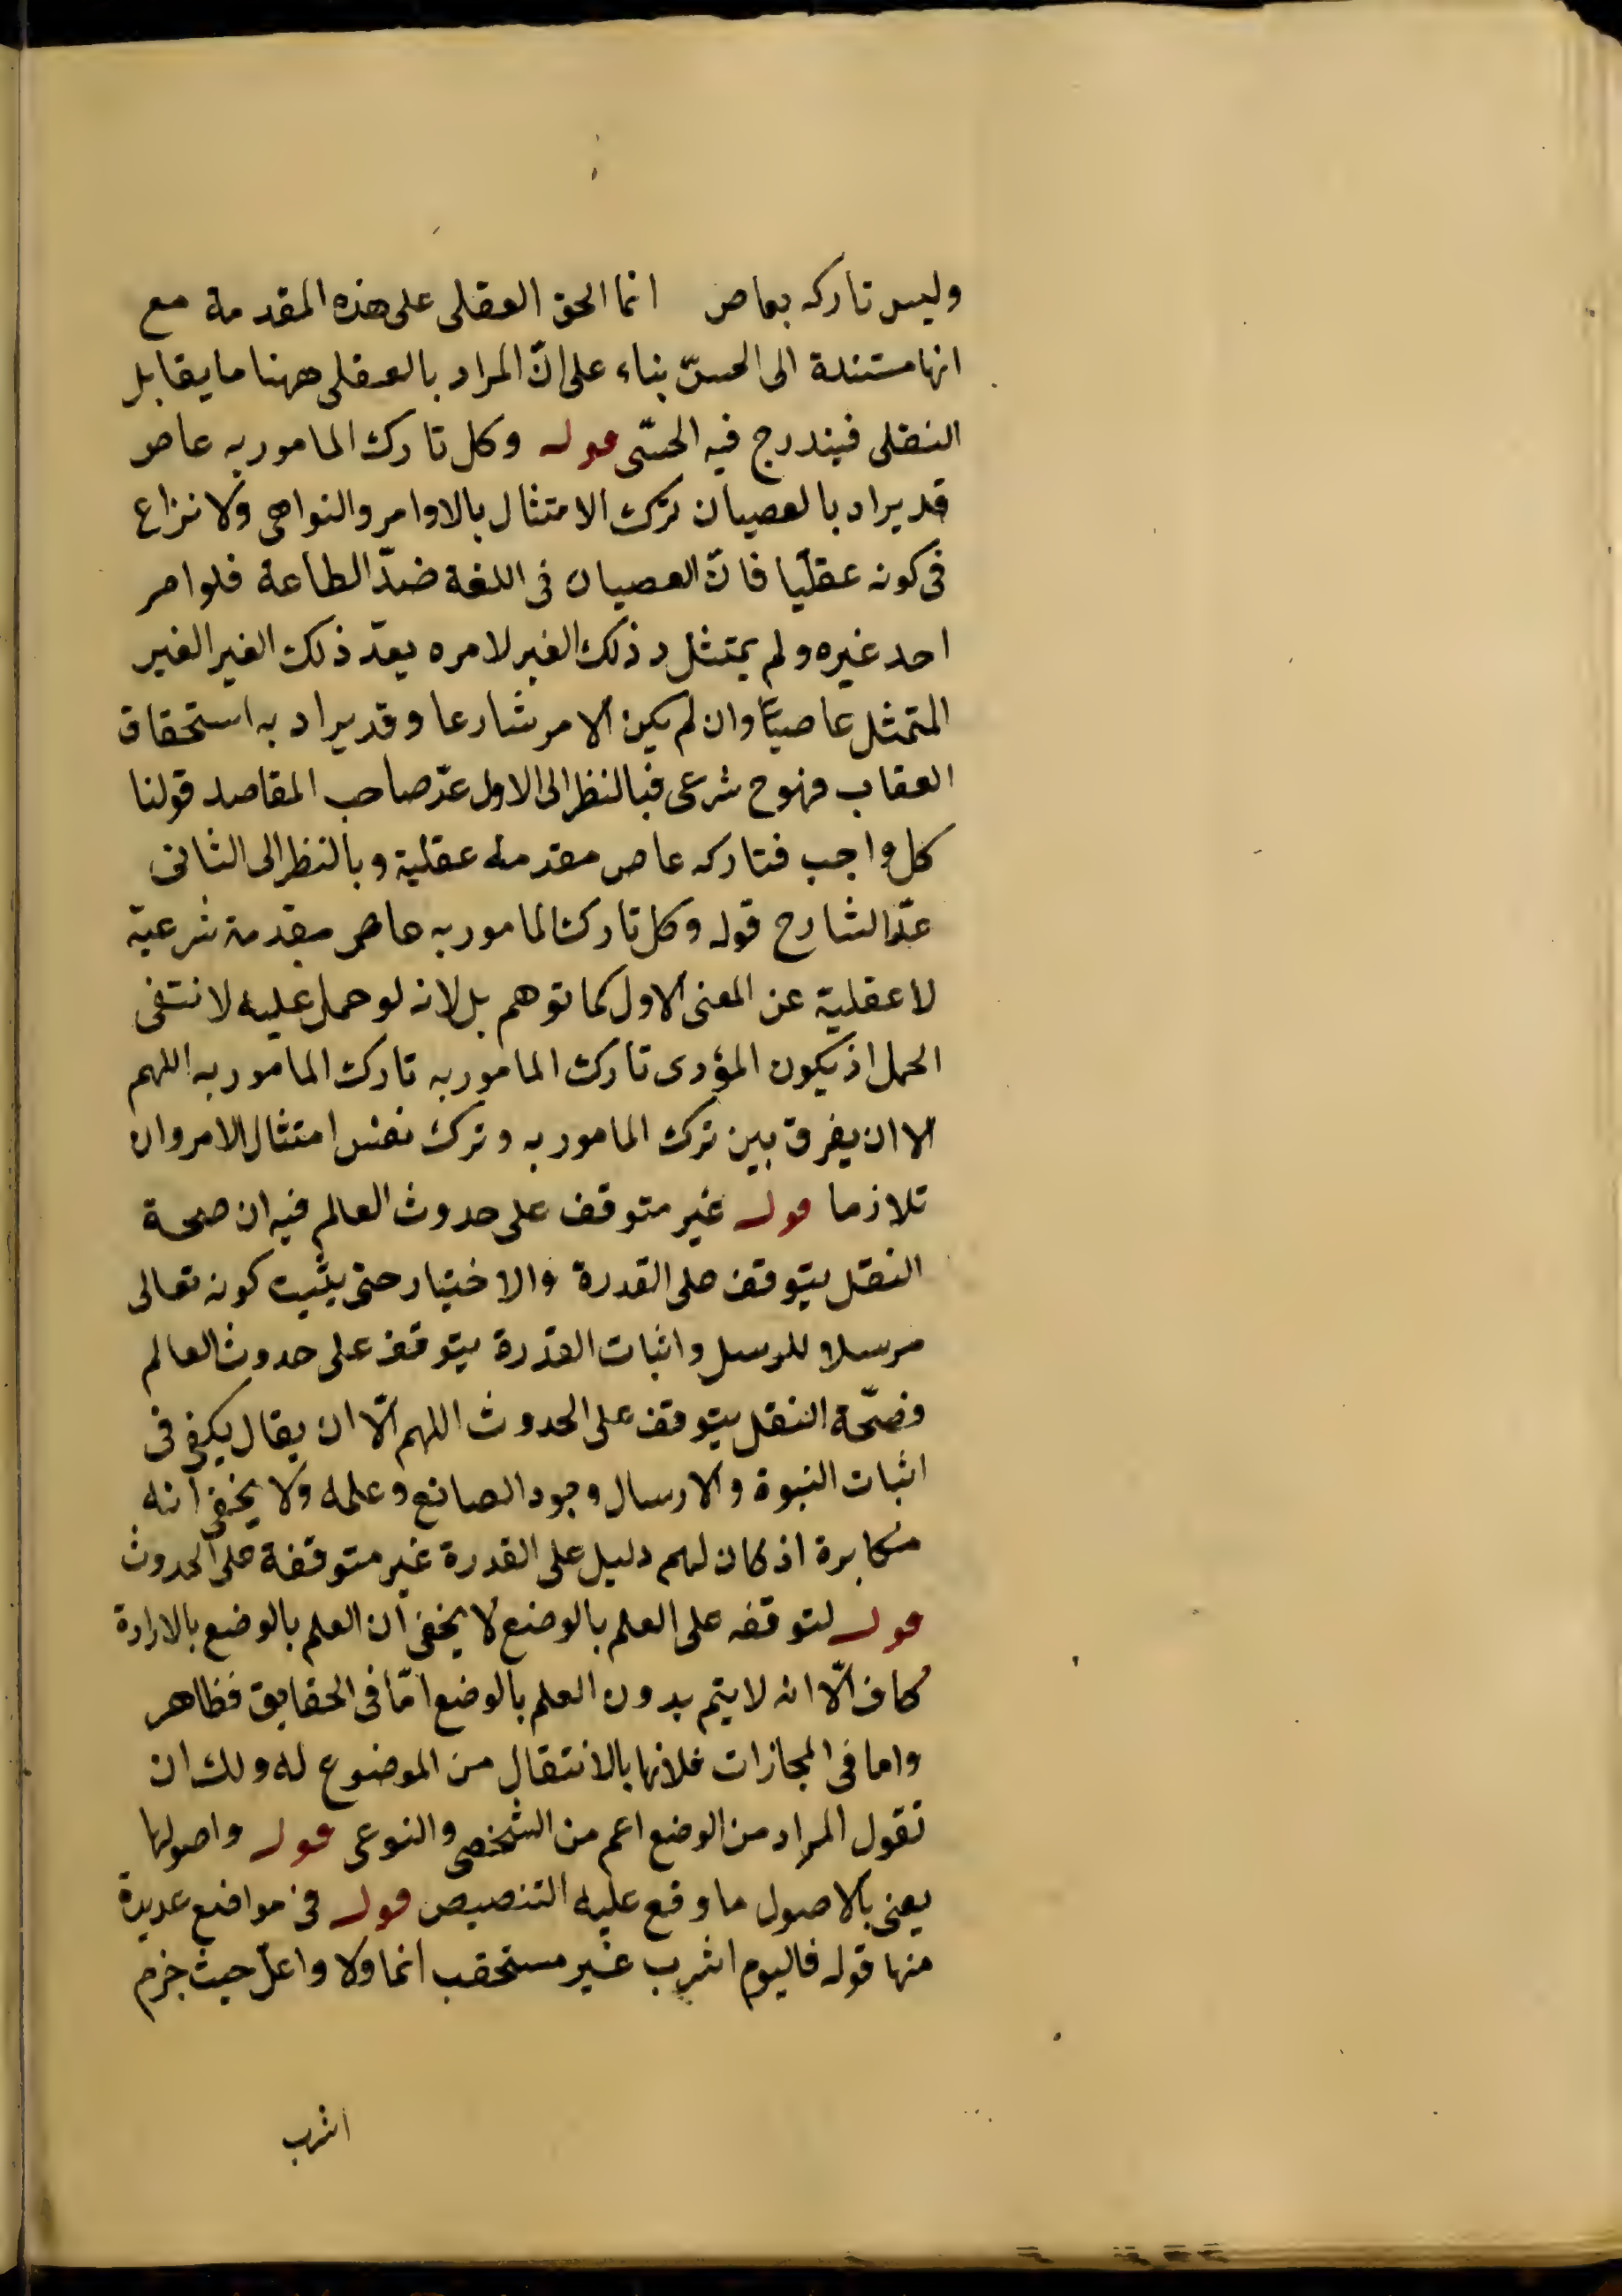 وليس تاركه بعاص انما الحق العقلى على هذه المقدمة مع
انها مستندة الى الحسّ بناء على انّ المراد بالعقلى ههنا ما يقابل
النقلى فيندرج فيه الحسّى قوله وكل تارك المامور به عاص
قد يراد بالعصيان ترك الامتثال بالاوامر والنواهى ولا نزاع
فى كونه عقليّا فانّ العصيان فى اللغة ضدّ الطاعة فلو امر
احد غيره ولم يمتثل ذلك الغير لامره يعدّ ذلك الغير الغير
المتمثل عاصيًا وان لم يكن الامر شارعا وقد يراد به استحقاق
العقاب فهوح شرعى فبالنظر الى الاول عدّ صاحب المقاصد قولنا
كل واجب فتاركه عاص مقدمة عقلية وبالنظر الى الثانى
عدّ الشارح قوله وكل تارك المامور به عاص مقدمة شرعيّة
لا عقليّة عن المعنى الاول كما توهم بل لانه لو حمل عليه لانتفى
الحمل اذ يكون المؤدى تارك المامور به تارك المامور به اللهم
الا ان يفرق بين ترك المامور به وترك نفس امتثال الامر وان
تلازما قوله غير متوقف على حدوث العالم فيه ان صحة
النقل يتوقف على القدرة والاختيار حتى يثبت كونه تعالى
مرسلا للرسل واثبات القدرة يتوقف على حدوث العالم
فصحّة النقل يتوقف على الحدوث اللهم الّا ان يقال يكفى فى
اثبات النبوة والارسال وجود الصانع وعلمه ولا يخفى انه
مكابرة اذ كان لهم دليل على القدرة غير متوقفة على الحدوث
قوله لتوقفه على العلم بالوضع لا يخفى ان العلم بالوضع بالارادة
كاف الّا انه لا يتم بدون العلم بالوضع امّا فى الحقايق فظاهر
واما فى المجازات فلانها بالانتقال من الموضوع له ولك ان
تقول المراد من الوضع اعم من الشخصى والنوعى قوله واصولها
يعنى بالاصول ما وقع عليه التنصيص قوله فى مواضع عديدة
منها قوله فاليوم اشرب غير مستحقب اثما ولا واغل حيث جزم
اشرب